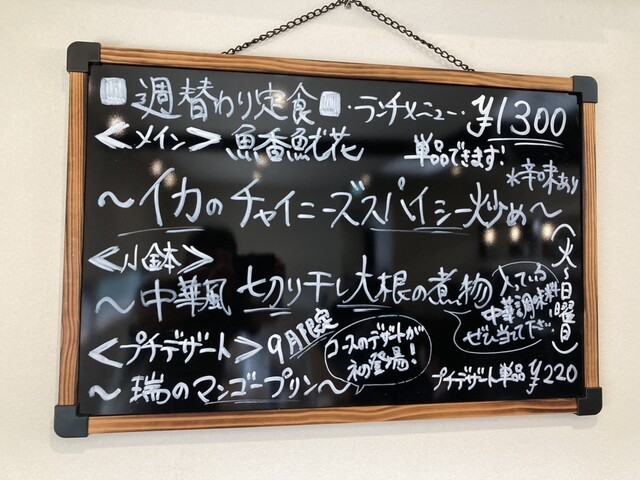 週替わり定食 ・ランチメニュー・ ¥1300
<メイン> 魚香魷花 単品できます!
*辛味あり
~イカのチャイニーズスパイシー炒め~
(火~日曜日)
<小鉢>
~中華風 切り干し大根の煮物
入っている
中華調味料
ぜひ当て下さい
<プチデザート> 9月限定
コースのデザートが
初登場!
~瑞のマンゴープリン~
プチデザート単品¥220